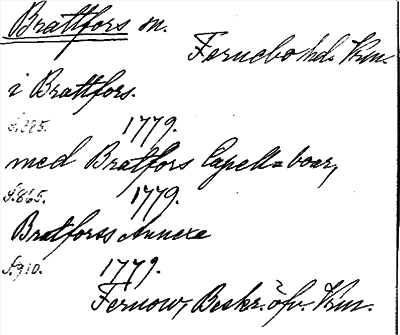 Brattfors sn.
Fernebo hd. Vrm.
i Brattfors.
s. 325. 1779.
med Bratfors Capell=boar,
s. 865. 1779.
Bratforss Annexa
s. 910. 1779.
Fernow, Beskr. öfv. Vrm.